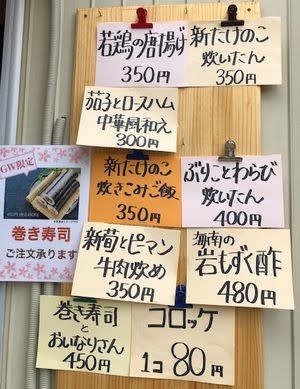 若鶏の唐揚げ
350円
新たけのこ
炊いたん
350円
茄子とロースハム
中華風和え
300円
新たけのこ
炊きこみご飯
350円
ぶりことわらび
炊いたん
400円
新筍とピーマン
牛肉炒め
350円
岩もずく酢
480円
巻き寿司
と
おいなりさん
450円
コロッケ
1コ 80円
GW限定
巻き寿司
ご注文承ります